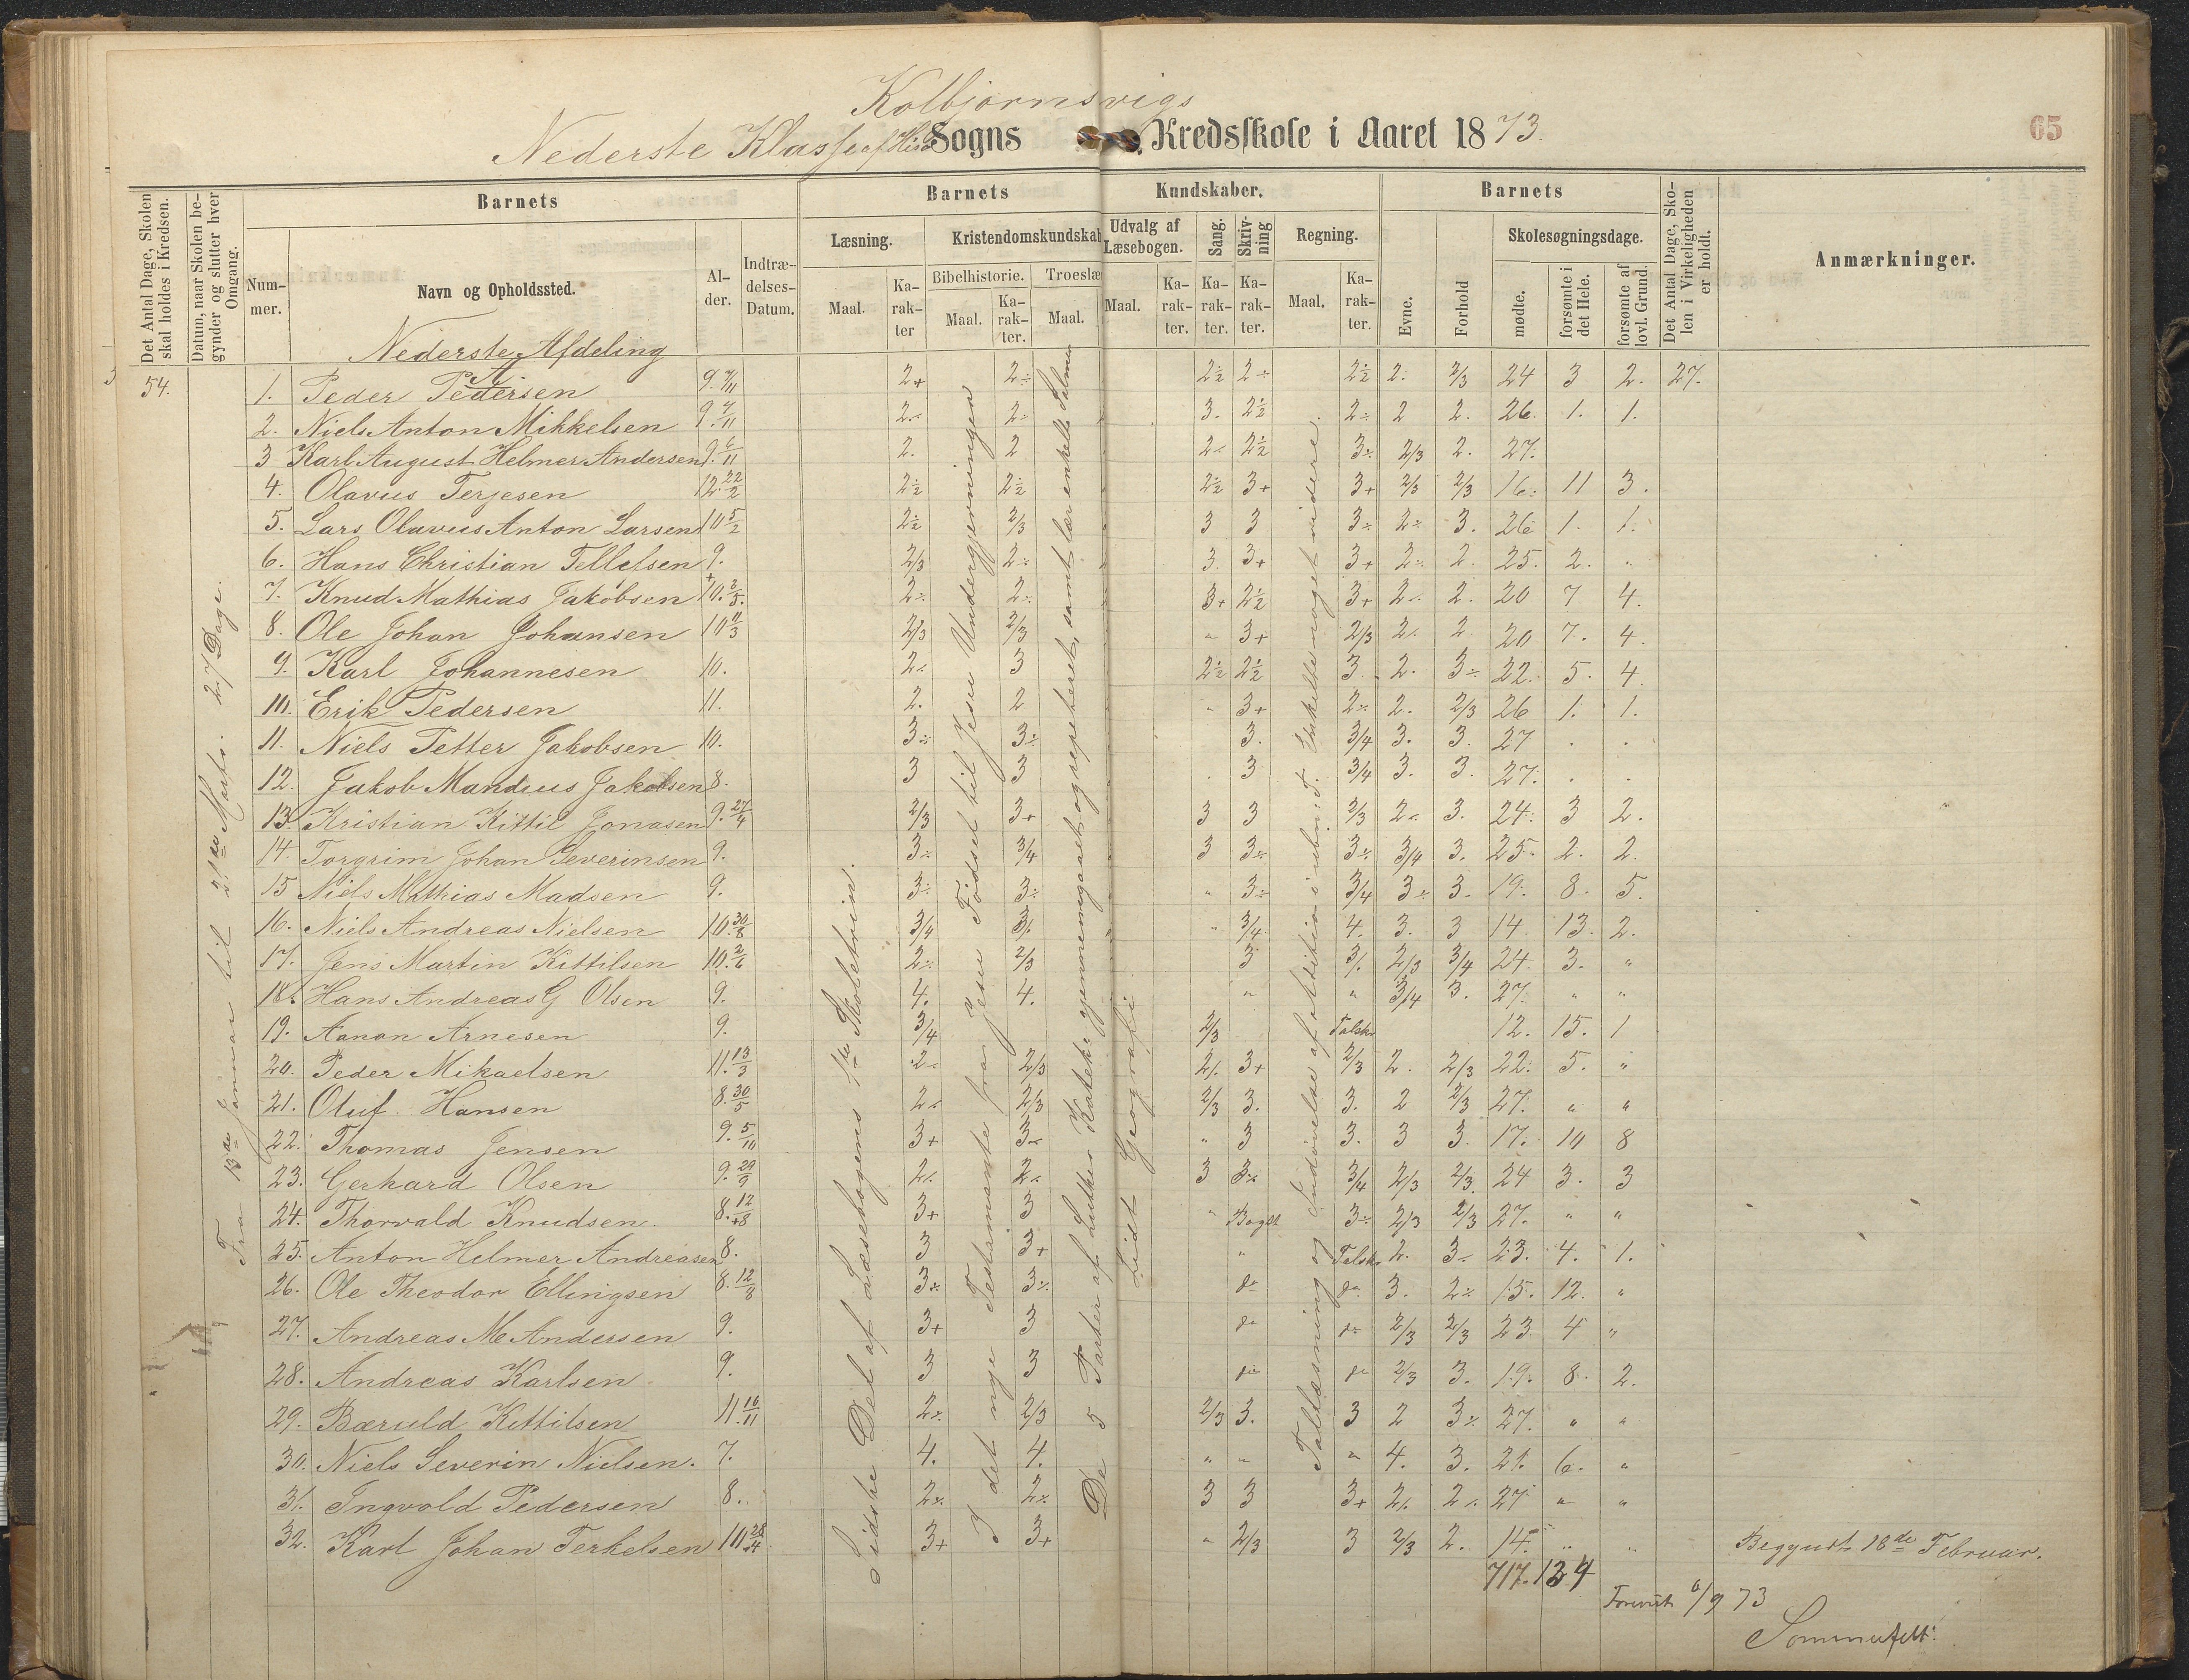 Kolbjørnsvigs
Nederste Klasse af Hisø Sogns Kredsskole i Aaret 1873.
65
Det Antal Dage, Skolen skal holdes i Kredsen.
Datum, naar Skolen begynder og slutter hver Omgang.
Barnets
Nummer.
Navn og Opholdssted.
Alder.
Indtrædelses-Datum.
Barnets Kundskaber.
Læsning.
Maal.
Karakter
Kristendomskundskab
Bibelhistorie.
Maal.
Karakter.
Troeslæ
Maal.
Udvalg af Læsebogen.
Maal.
Karakter.
Sang.
Karakter.
Skrivning
Karakter.
Regning.
Maal.
Karakter.
Barnets
Evne.
Forhold
Skolesøgningsdage.
mødte.
forsømte i det Hele.
forsømte af lovl. Grund.
Det Antal Dage, Skolen i Virkeligheden er holdt.
Anmærkninger.
Nederste Afdeling
54.
Fra 13de Januar til 21de Marts. 27 Dage.
Sidste Del af Læsebogens 1ste Skoletrin.
I det nye Testamente fra Jesu Fødsel til Jesu Undergjerninger
De 5 Parter af Luthers Kateke: gjennemgaaet og repeteret, samt lær enkelte Salmer
Lidt Geografi
Tallæsning og Indøvelse af Addition i ubn. T. Enkelte noget videre.
1. Peder Pedersen 9. 7/11 2+ 2÷ 2½ 2÷ 2½ 2. 2/3 24 3 2. 27.
2. Niels Anton Mikkelsen 9. 7/11 2÷ 2÷ 3. 2½ 2÷ 2 2. 26. 1. 1.
3 Karl August Helmer Andersen 9. 6/11 2. 2 2÷ 2½ 3÷ 2/3 2. 27.
4. Olavus Terjesen 12. 22/2 2½ 2½ 2½ 3+ 3+ 2/3 2/3 16. 11 3.
5. Lars Olavus Anton Larsen 10 5/2 2½ 2/3 3 3 3÷ 2÷ 3. 26 1. 1.
6. Hans Christian Tellefsen 9. 2/3 2÷ 3. 3+ 3+ 2÷ 2. 25. 2. "
7. Knud Mathias Jakobsen 10. 3/5. 2÷ 2÷ 3+ 2½ 3+ 2÷ 2. 20 7 4.
8. Ole Johan Johansen 10 11/3 2/3 2/3 " 3+ 2/3 2÷ 2. 20 7. 4.
9. Karl Johannesen 10. 2÷ 3 2½ 2½ 3. 2. 3÷ 22. 5. 4.
10. Erik Pedersen 11. 2. 2 " 3+ 2÷ 2. 2/3 26 1. 1.
11. Niels Petter Jakobsen 10. 3÷ 3÷ 3. 3/4 3. 3. 27 . .
12. Jakob Mandius Jakobsen 8. 3 3 . 3 3/4 3. 3. 27. . .
13. Kristian Kittil Jonasen 9. 27/4 2/3 3+ 3 3 2/3 2÷ 3. 24. 3 2.
14. Torgrim Johan Severinsen 9. 3÷ 3/4 3 3÷ 3÷ 3/4 3. 25. 2. 2.
15 Niels Mathias Madsen 9. 3÷ 3÷ " 3÷ 3/4 3÷ 3. 19. 8. 5.
16. Niels Andreas Nielsen 10. 30/8 3/4 3÷ " 3/4 4. 3. 3 14. 13. 2.
17. Jens Martin Kittilsen 10. 2/6 2÷ 2/3 3 3÷ 2/3 3/4 24. 3. "
18. Hans Andreas G Olsen 9. 4. 4. " " 3/4 3. 27. " "
19. Aanon Arnesen 9. 3/4 2/3 Talsk. 12. 15. 1
20. Peder Mikaelsen 11. 13/3 2÷ 2/3 2÷ 3+ 2/3 2. 2/3 22. 5. "
21. Oluf Hansen 8. 30/5 2÷ 2/3 2/3 3. 3. 2 2/3 27. " "
22. Thomas Jensen 9. 5/10 3+ 3÷ " 3 3. 3 3. 17. 10 8
23. Gerhard Olsen 9. 29/9 2÷ 2÷ 3 3÷ 3/4 2/3 2/3 24 3. 3
24. Thorvald Knudsen 8. 12/8 3+ 3 " Bogst 3÷ 2/3 2/3 27. " "
25. Anton Helmer Andreasen 8. 3 3+ " Talsk. 2. 3÷ 23. 4. 1.
26. Ole Theodor Ellingsen 8. 12/8 3÷ 3÷ do do 3. 2÷ 15. 12. "
27. Andreas M Andersen 9. 3+ 3 do do 2/3 2/3 23 4 "
28. Andreas Karlsen 9. 3 3 do do 2/3 3. 19. 8. 2.
29. Bæruld Kittilsen 11. 16/11 2÷ 2/3 2/3 3. 3 2 3÷ 27. " "
30. Niels Severin Nielsen. 7. 4. 4. " " " 4. 3. 21. 6. "
31. Ingvold Pedersen 8. 2÷ 2÷ 3 3 3+ 2÷ 2÷ 27 " "
32. Karl Johan Terkelsen 10 28/4 3+ 3+ " 2/3 3 2/3 2. 14. " " Begyndt 18de Februar.
717. 134
Forevist 6/9 73
Sommerfelt.